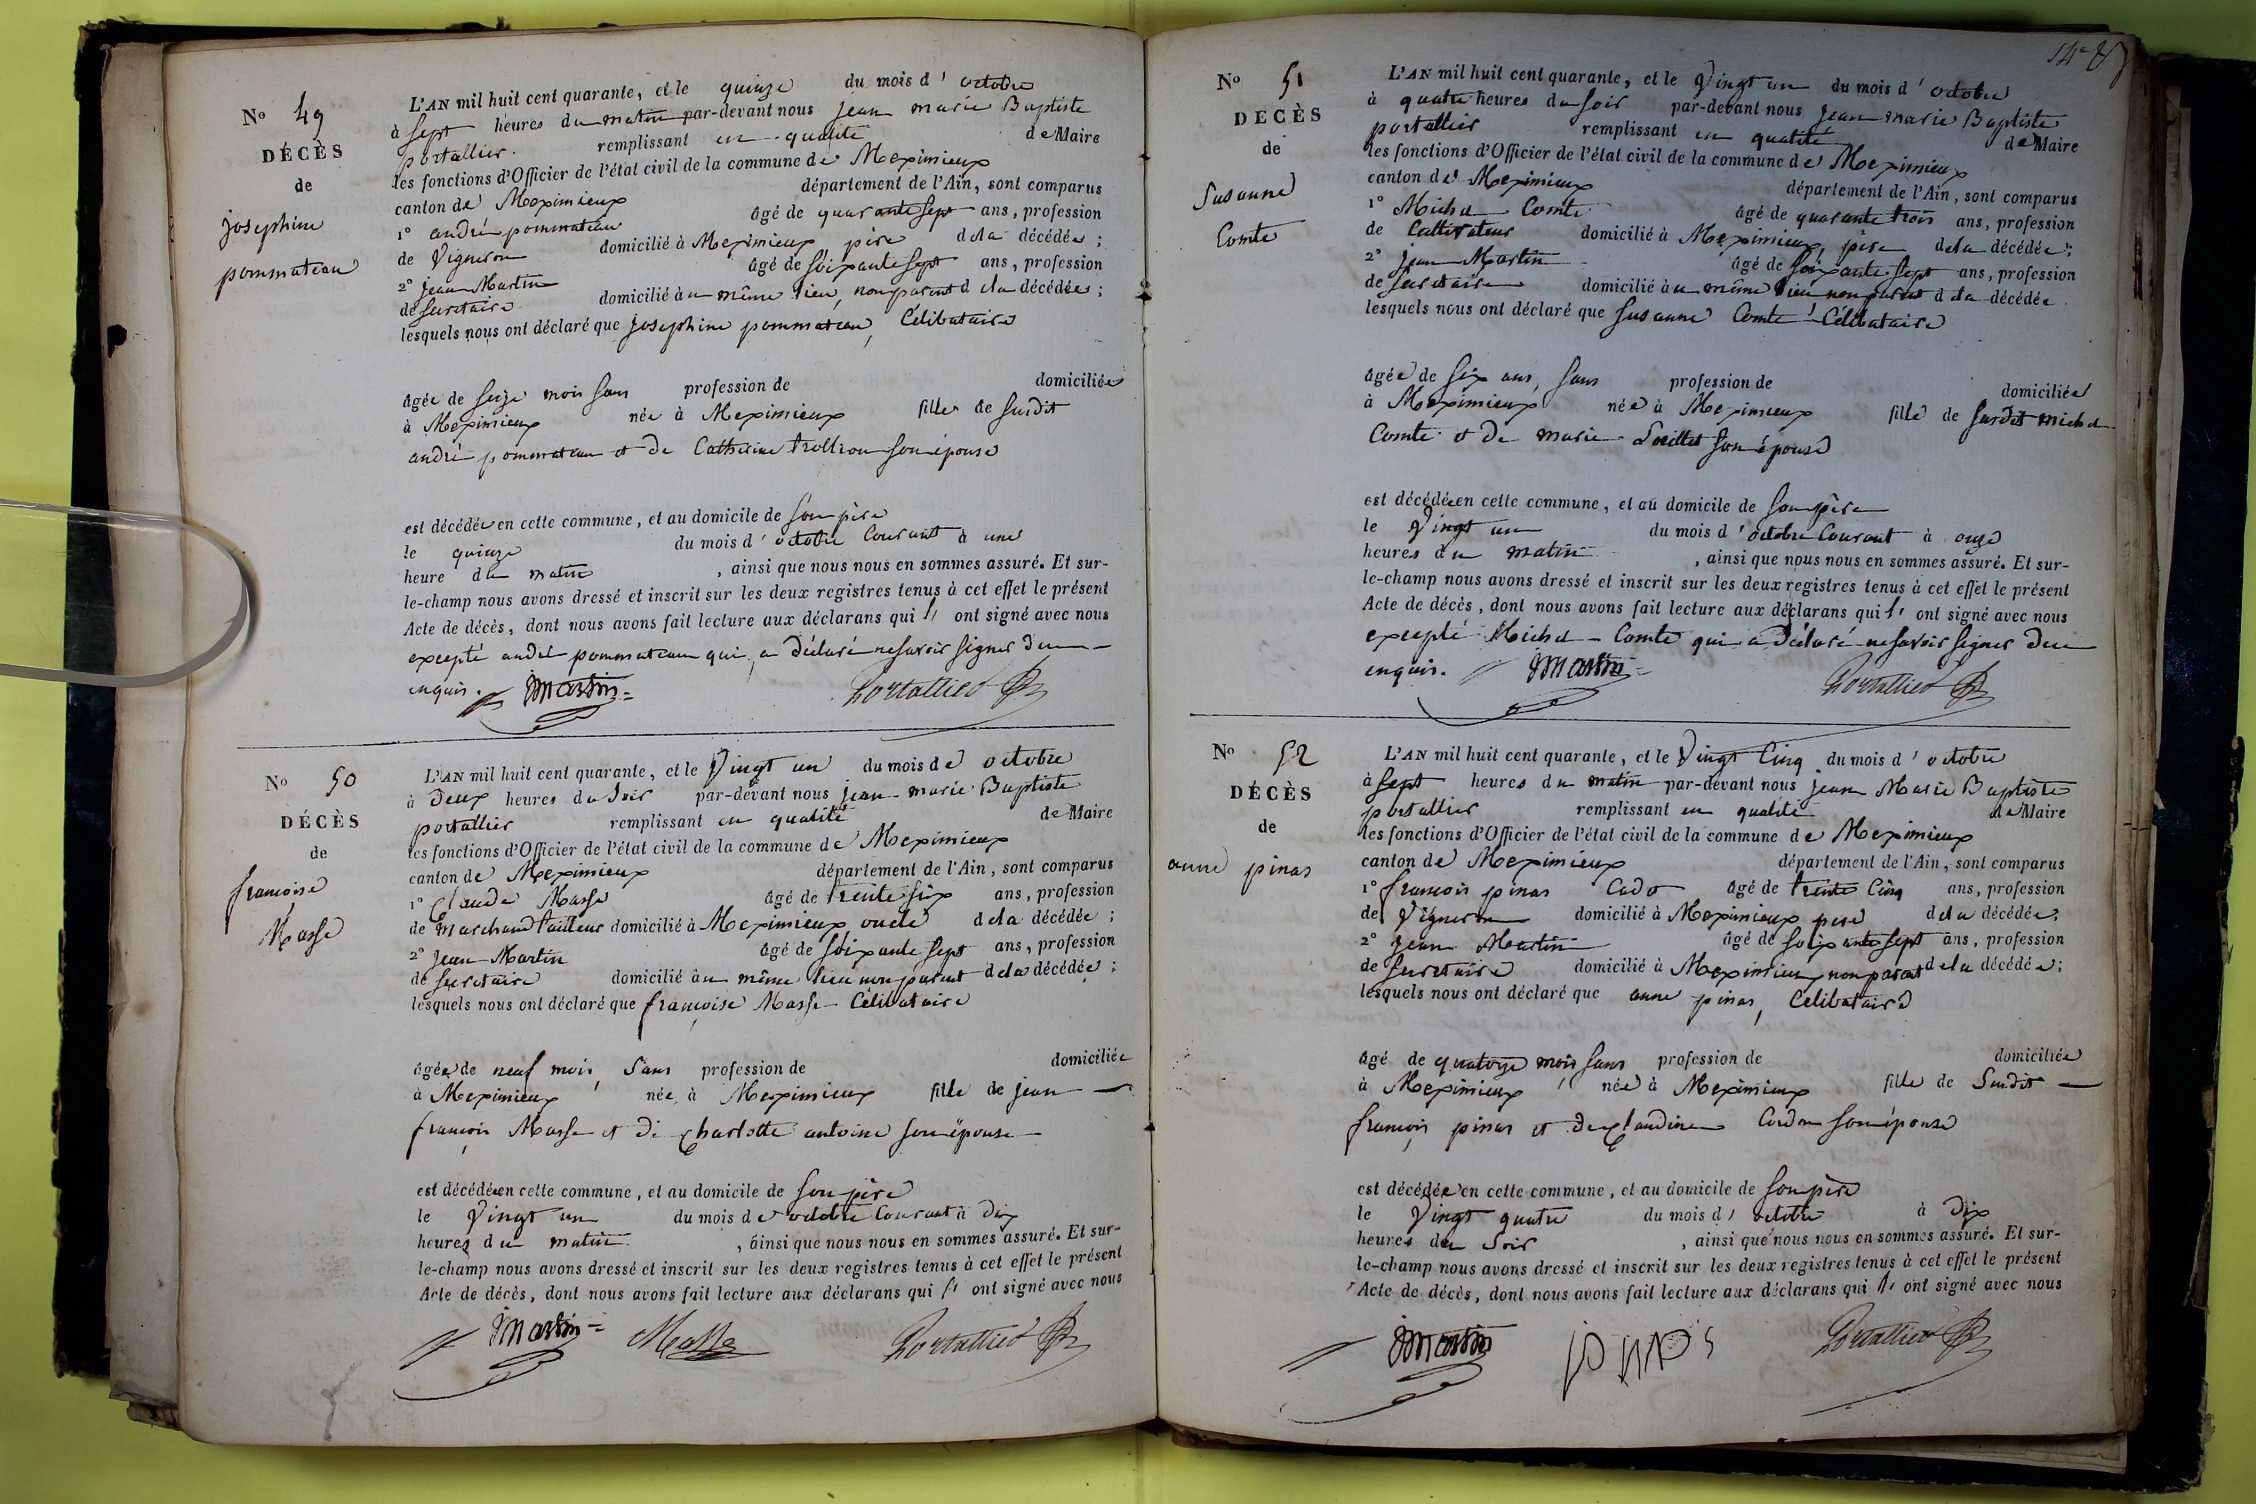 N° 49
DÉCÈS
de
josephine
pommateau
L'AN mil huit cent quarante, et le quinze du mois d' octobre
à sept heures du matin par-devant nous jean marie Baptiste
portallier remplissant en qualité de Maire
les fonctions d'Officier de l'état civil de la commune de Meximieux
canton de Meximieux département de l'Ain, sont comparus
1° andré pommateau âgé de quarante sept ans, profession
de Vigneron domicilié à Meximieux, père de la décédée;
2° jean Martin âgé de soixante sept ans, profession
de secrétaire domicilié au même lieu, non parent de la décédée;
lesquels nous ont déclaré que josephine pommateau, Célibataire
âgée de seize mois sans profession de domiciliée
à Meximieux née à Meximieux fille de susdit
andré pommateau et de Catherine trollion son épouse
est décédée en cette commune, et au domicile de son père
le quinze du mois d' octobre Courant à une
heure du matin, ainsi que nous nous en sommes assuré. Et sur-
le-champ nous avons dressé et inscrit sur les deux registres tenus à cet effet le présent
Acte de décès, dont nous avons fait lecture aux déclarans qui l' ont signé avec nous
excepté andré pommateau qui a déclaré ne savoir signer de ce
enquis. JMartin Portallier
N° 50
DÉCÈS
de
françoise
Masse
L'AN mil huit cent quarante, et le Vingt un du mois de octobre
à deux heures du soir par-devant nous jean marie Baptiste
portallier remplissant en qualité de Maire
les fonctions d'Officier de l'état civil de la commune de Meximieux
canton de Meximieux département de l'Ain, sont comparus
1° Claude Masse âgé de trente six ans, profession
de marchand tailleur domicilié à Meximieux, oncle de la décédée;
2° jean Martin âgé de soixante sept ans, profession
de secrétaire domicilié au même lieu non parent de la décédée;
lesquels nous ont déclaré que françoise Masse Célibataire
âgée de neuf mois, sans profession de domiciliée
à Meximieux née à Meximieux fille de jean
françois Masse et de Charlotte antoine son épouse
est décédée en cette commune, et au domicile de son père
le Vingt un du mois de octobre Courant à dix
heures du matin, ainsi que nous nous en sommes assuré. Et sur-
le-champ nous avons dressé et inscrit sur les deux registres tenus à cet effet le présent
Acte de décès, dont nous avons fait lecture aux déclarans qui l' ont signé avec nous
JMartin Masse Portallier
N° 51
DECÈS
de
Susanne
Comte
L'AN mil huit cent quarante, et le Vingt un du mois d' octobre
à quatre heures du soir par-devant nous jean marie Baptiste
portallier remplissant en qualité de Maire
les fonctions d'Officier de l'état civil de la commune de Meximieux
canton de Meximieux département de l'Ain, sont comparus
1° Michel Comte âgé de quarante trois ans, profession
de Cultivateur domicilié à Meximieux, père de la décédée;
2° jean Martin âgé de soixante sept ans, profession
de secrétaire domicilié au même lieu non parent de la décédée
lesquels nous ont déclaré que Susanne Comte Célibataire
âgée de six ans, sans profession de domiciliée
à Meximieux née à Meximieux fille de susdit michel
Comte et de marie son épouse
est décédée en cette commune, et au domicile de son père
le Vingt un du mois d' octobre Courant à onze
heures du matin, ainsi que nous nous en sommes assuré. Et sur-
le-champ nous avons dressé et inscrit sur les deux registres tenus à cet effet le présent
Acte de décès, dont nous avons fait lecture aux déclarans qui l' ont signé avec nous
excepté Michel Comte qui a déclaré ne savoir signer de ce
enquis. JMartin Portallier
N° 52
DÉCÈS
de
anne pinas
L'AN mil huit cent quarante, et le Vingt Cinq du mois d' octobre
à sept heures du matin par-devant nous jean Marie Baptiste
portallier remplissant en qualité de Maire
les fonctions d'Officier de l'état civil de la commune de Meximieux
canton de Meximieux département de l'Ain, sont comparus
1° françois pinas Cado âgé de trente Cinq ans, profession
de Vigneron domicilié à Meximieux père de la décédée;
2° jean Martin âgé de soixante sept ans, profession
de secrétaire domicilié à Meximieux non parent de la décédée;
lesquels nous ont déclaré que anne pinas, Célibataire
âgé de quatorze mois sans profession de domiciliée
à Meximieux née à Meximieux fille de Susdit
françois pinas et de Claudine Cordon son épouse
est décédée en cette commune, et au domicile de son père
le Vingt quatre du mois d' octobre à dix
heures du soir, ainsi que nous nous en sommes assuré. Et sur-
le-champ nous avons dressé et inscrit sur les deux registres tenus à cet effet le présent
Acte de décès, dont nous avons fait lecture aux déclarans qui l' ont signé avec nous
JMartin pinas Portallier